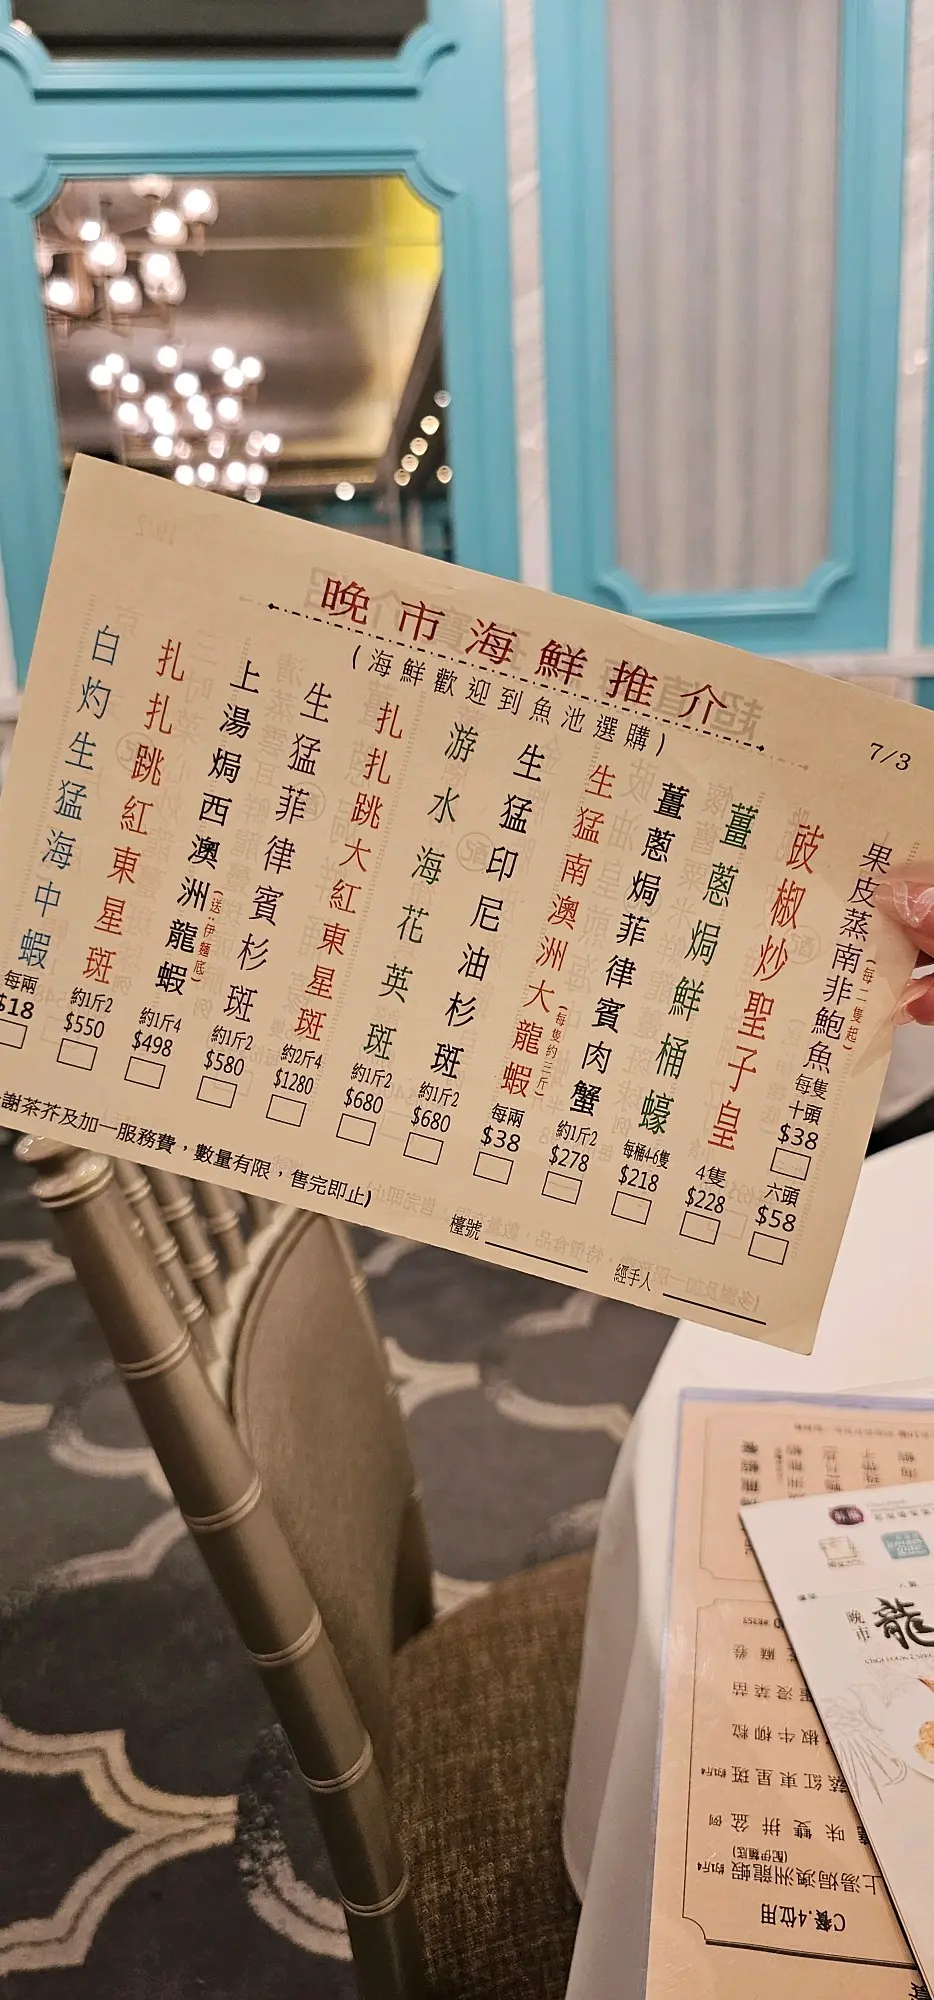 晚市海鮮推介
(海鮮歡迎到魚池選購)
7/3
果皮蒸南非鮑魚
(每二隻起)
每隻
十頭
$38
六頭
$58
豉椒炒聖子皇
4隻
$228
薑蔥焗鮮桶蠔
每桶4-6隻
$218
薑蔥焗菲律賓肉蟹
約1斤2
$278
生猛南澳洲大龍蝦
(每隻約三斤)
每兩
$38
生猛印尼油杉斑
約1斤2
$680
游水海花英斑
約1斤2
$680
扎扎跳大紅東星斑
約2斤4
$1280
生猛菲律賓杉斑
約1斤2
$580
上湯焗西澳洲龍蝦
(送:伊麵底)
約1斤4
$498
扎扎跳紅東星斑
約1斤2
$550
白灼生猛海中蝦
每兩
$18
謝茶芥及加一服務費，數量有限，售完即止)
檯號
經手人
晚市
龍
C餐.4位用
上湯焗澳洲龍蝦 約1斤4
(配伊麵底)
味雙拼盆 例
蒸紅東星斑 約1斤4
椒牛柳粒
浸菜苗